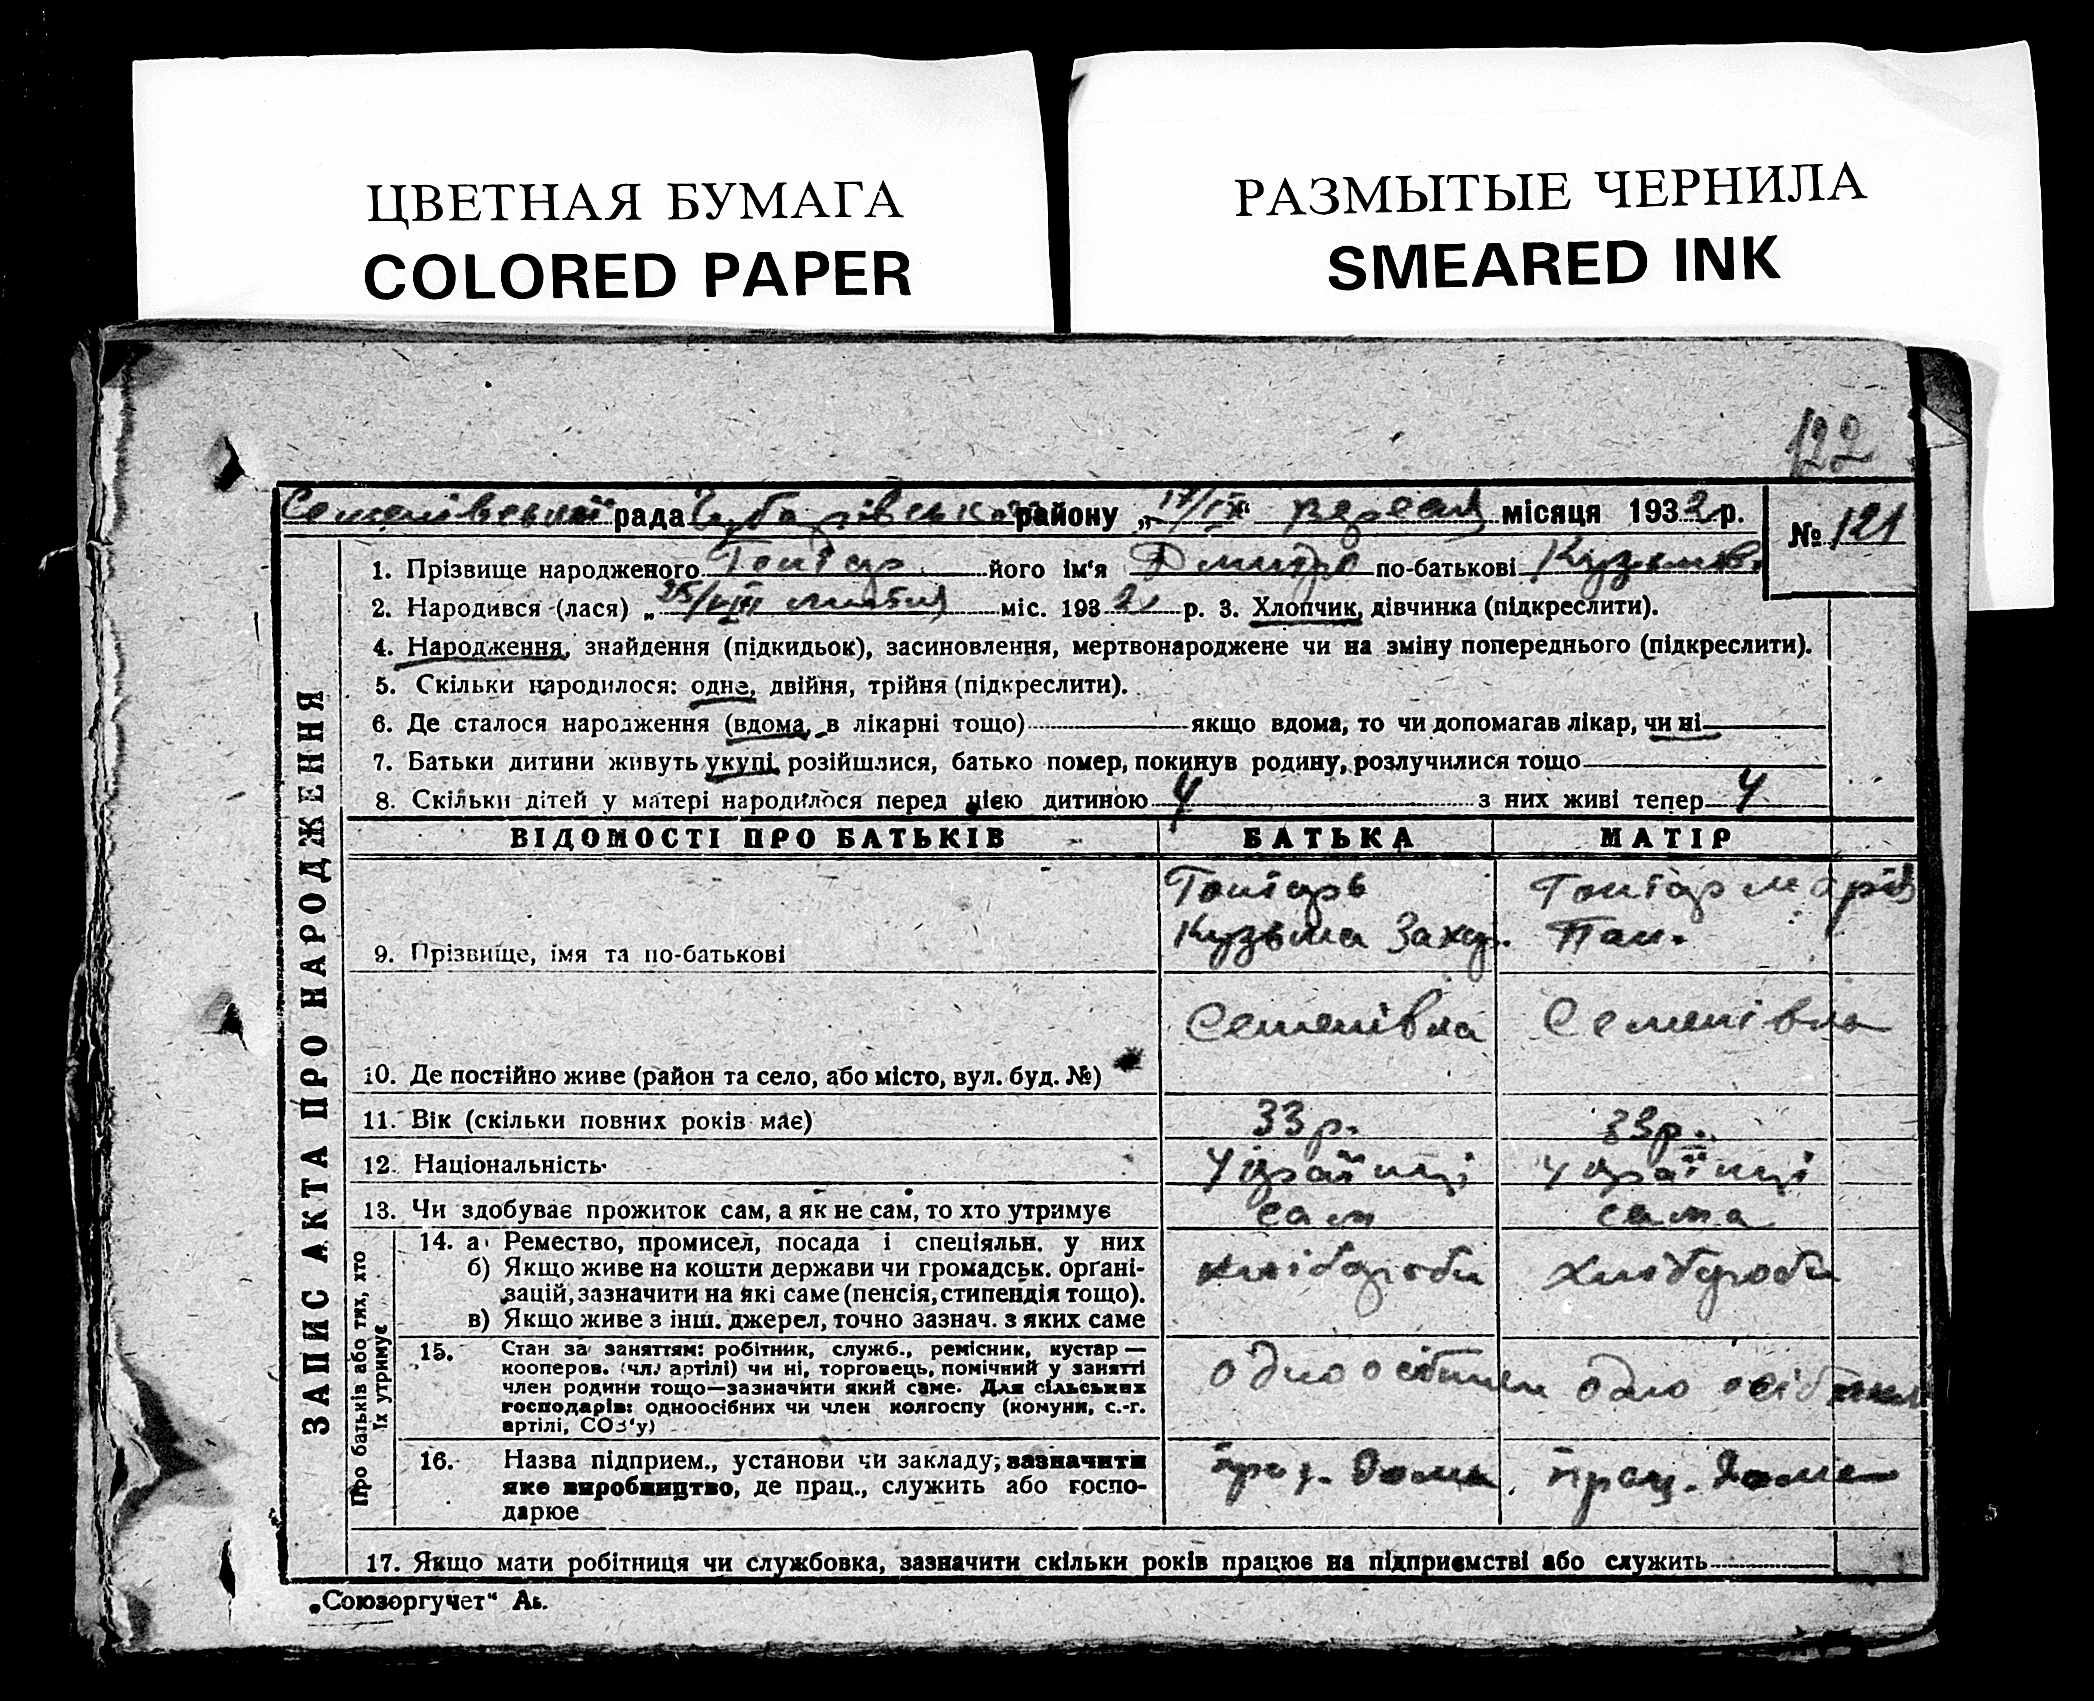 ЦВЕТНАЯ БУМАГА
COLORED PAPER
РАЗМЫТЫЕ ЧЕРНИЛА
SMEARED INK
122
Семенівської рада Чубарівського району „17/IX“ вересня місяця 1932 р. № 121
1. Прізвище народженого Гонтар його ім‘я Дмитро по-батькові Кузьмов.
2. Народився (лася) „25/VIII міс. 1932 р. 3. Хлопчик, дівчинка (підкреслити).
4. Народження, знайдення (підкидьок), засиновлення, мертвонароджене чи на зміну попереднього (підкреслити).
5. Скільки народилося: одне, двійня, трійня (підкреслити).
6. Де сталося народження (вдома, в лікарні тощо) якщо вдома, то чи допомагав лікар, чи ні
7. Батьки дитини живуть укупі, розійшлися, батько помер, покинув родину, розлучилися тощо
8. Скільки дітей у матері народилося перед цією дитиною 4 з них живі тепер 4
ЗАПИС АКТА ПРО НАРОДЖЕННЯ
ВІДОМОСТІ ПРО БАТЬКІВ БАТЬКА МАТІР
Гонтарь Гонтар Марія
Кузьма Заха. Пан.
9. Прізвище, імя та по-батькові
Семенівка Семенівка
10. Де постійно живе (район та село, або місто, вул. буд. №)
11. Вік (скільки повних років має) 33 р. 33 р.
12. Національність Українці Українці
13. Чи здобуває прожиток сам, а як не сам, то хто утримує сам сама
Про батьків або тих, хто
їх утримує
14. а) Ремество, промисел, посада і спеціяльн. у них
б) Якщо живе на кошти держави чи громадськ. органі- хліборобы хлібороби
зацій, зазначити на які саме (пенсія, стипендія тощо).
в) Якщо живе з інш. джерел, точно зазнач. з яких саме
15. Стан за заняттям: робітник, служб., ремісник, кустар —
кооперов. (чл. артілі) чи ні, торговець, помічний у занятті
член родини тощо—зазначити який саме. Для сільських одноосібник одноосібник
господарів: одноосібних чи член колгоспу (комуни, с.-г.
артілі, СОЗ‘у)
16. Назва підприєм., установи чи закладу; зазначити прац. дома прац. дома
яке виробництво, де прац., служить або госпо-
дарює
17. Якщо мати робітниця чи службовка, зазначити скільки років працює на підприємстві або служить
„Союзоргучет“